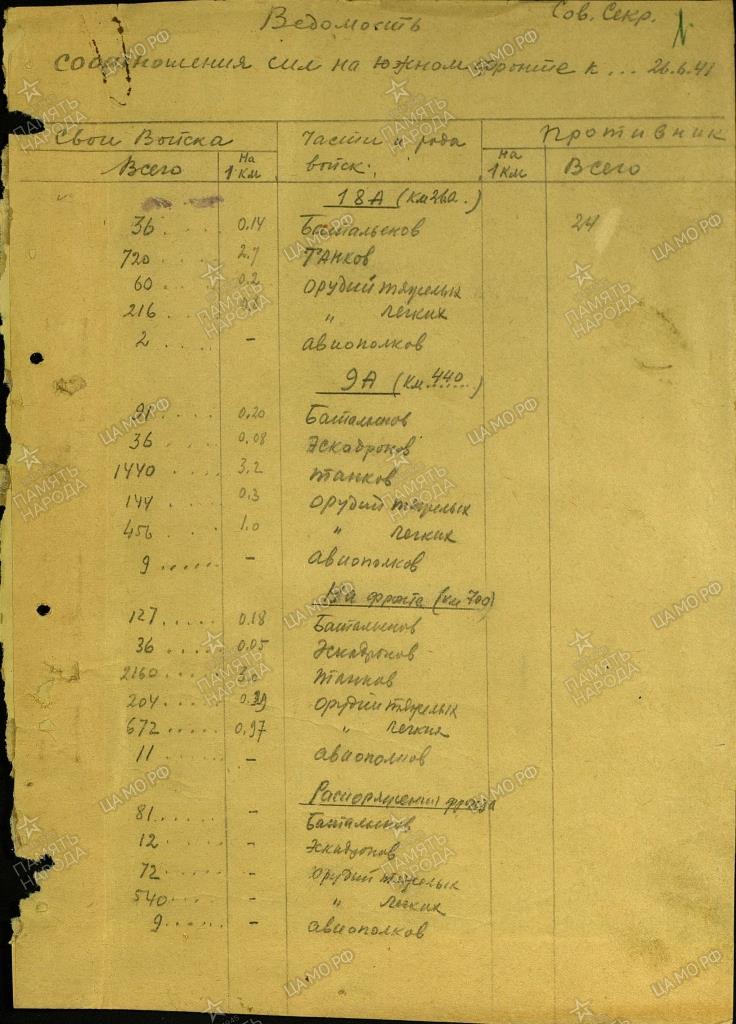 Сов. Секр.
Ведомость
соотношения сил на южном фронте к ... 26.6.41
Свои Войска Части и рода войск. Противник
Всего на 1 км на 1 км Всего
18А (км 260.)
36 ..... 0.14 Батальонов 24
720 ..... 2.7 Танков
60 .... 0.2 орудий тяжелых
216 .... " легких
2 .... - авиополков
9А (км 440)
91 ..... 0.20 Батальонов
36 .... 0.08 Эскадронов
1440 .... 3.2 танков
144 .... 0.3 орудий тяжелых
456 .... 1.0 " легких
9 ...... - авиополков
На фронта (км 700)
127 ..... 0.18 Батальонов
36 ..... 0.05 Эскадронов
2160 .... 3.0 танков
204 .... орудий тяжелых
672 ..... 0.97 " легких
11 ..... - авиополков
Распоряжении фронта
81 .... - Батальонов
12 .... - Эскадронов
72 .... - орудий тяжелых
540 .... - " легких
9 ..... - авиополков
ПАМЯТЬ НАРОДА
ЦАМО.РФ